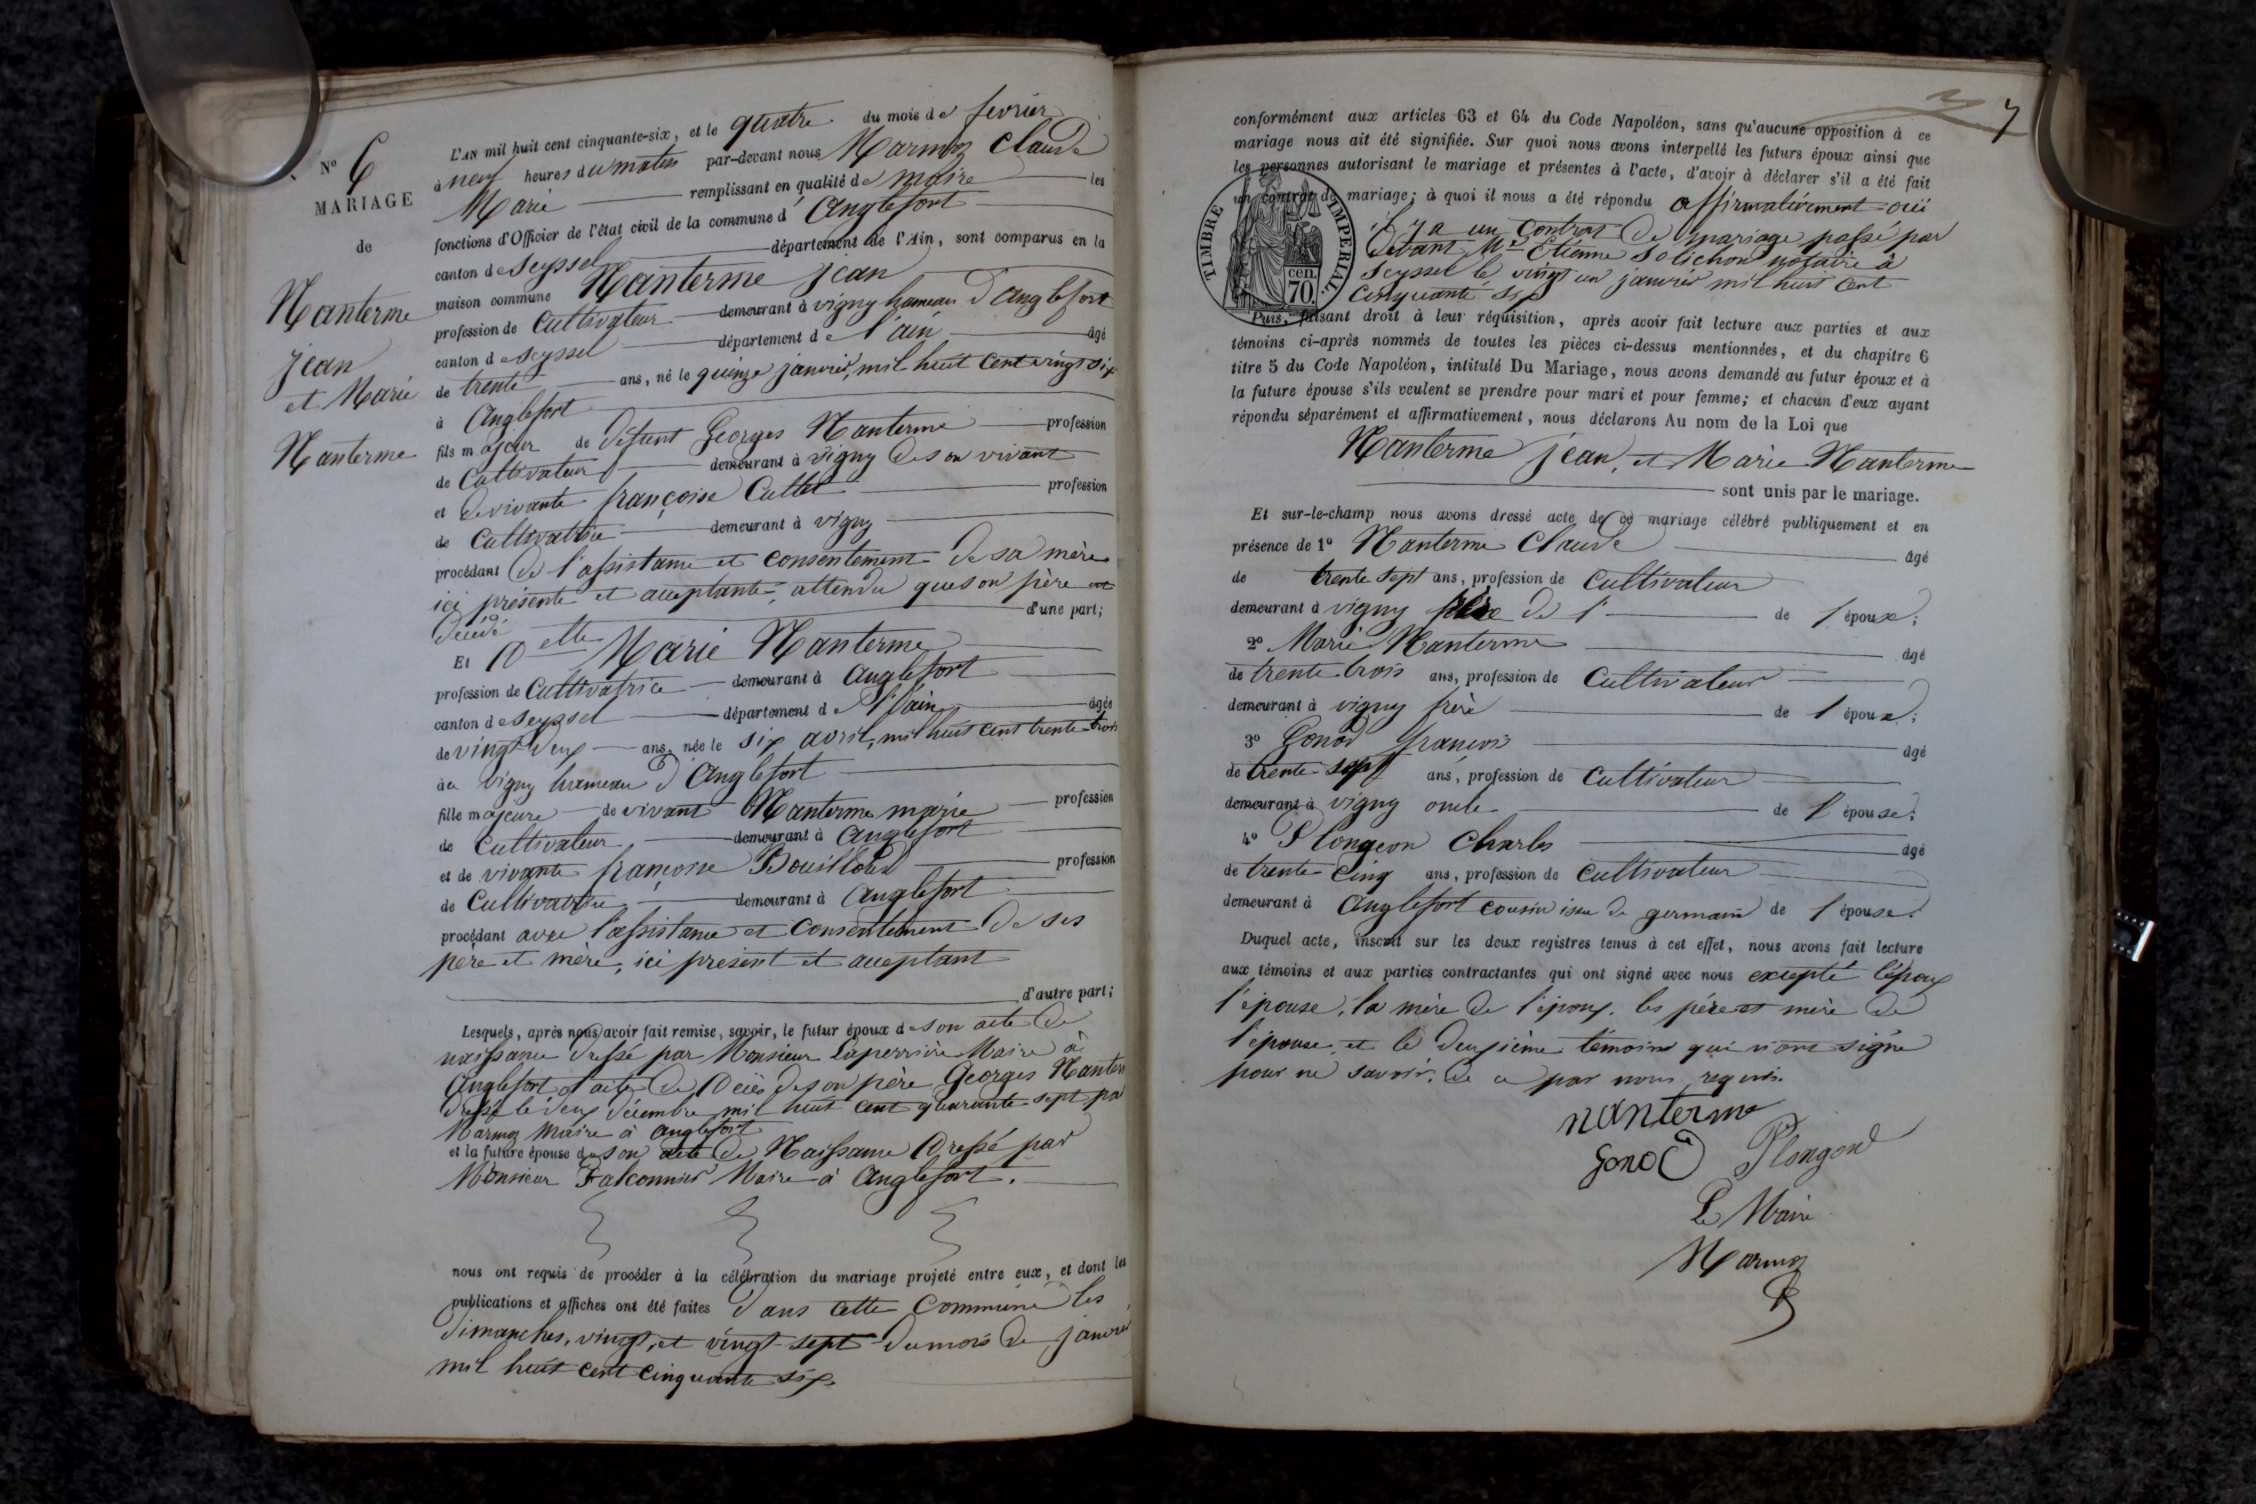 N.º 6
MARIAGE
de
Nanterme
jean
et Marie
Nanterme
L'AN mil huit cent cinquante-six, et le quatre du mois de fevrier
à neuf heures du matin par-devant nous Marmoz Claude
Marie remplissant en qualité de maire les
fonctions d'Officier de l'état civil de la commune d' Anglefort
canton de Seyssel département de l'Ain, sont comparus en la
maison commune Nanterme jean
profession de Cultivateur demeurant à vigny hameau d'Anglefort
canton de Seyssel département de l'ain âgé
de trente ans, né le quinze janvier, mil huit cent vingt six
à Anglefort
fils majeur de défunt Georges Nanterme profession
de Cultivateur demeurant à vigny de son vivant
et de vivante françoise Cullet profession
de Cultivatrice demeurant à vigny
procédant de l'assistance et consentement de sa mère
ici présente et acceptante, attendu que son père est
décédé d'une part;
Et Delle Marie Nanterme
profession de Cultivatrice demeurant à Anglefort
canton de Seyssel département de l'ain âgée
de vingt deux ans, née le six avril, mil huit cent trente trois
à vigny hameau d'Anglefort
fille majeure de vivant Nanterme marie profession
de Cultivateur demeurant à Anglefort
et de vivante françoise profession
de Cultivatrice demeurant à Anglefort
procédant avec l'assistance et consentement de ses
père et mère, ici présent et acceptant
d'autre part;
Lesquels, après nous avoir fait remise, savoir, le futur époux de son acte de
naissance dressé par Monsieur Laperrière Maire à
Anglefort l'acte de Décès de son père Georges Nanterme
dressé le deux décembre mil huit cent quarante sept par
Marmoz Maire à Anglefort
et la future épouse de son acte de Naissance Dressé par
Monsieur Falconnier Maire à Anglefort.
nous ont requis de procéder à la célébration du mariage projeté entre eux, et dont les
publications et affiches ont été faites dans cette Commune les
dimanches, vingt, et vingt sept du mois de janvier
mil huit cent cinquante six
7
conformément aux articles 63 et 64 du Code Napoléon, sans qu'aucune opposition à ce
mariage nous ait été signifiée. Sur quoi nous avons interpellé les futurs époux ainsi que
les personnes autorisant le mariage et présentes à l'acte, d'avoir à déclarer s'il a été fait
un contrat de mariage; à quoi il nous a été répondu affirmativement oui
il y a un Contrat de mariage passé par
devant Me Etienne Solichon notaire à
Seyssel le vingt un janvier mil huit cent
Cinquante six
TIMBRE IMPERIAL.
cen.
70.
Puis, faisant droit à leur réquisition, après avoir fait lecture aux parties et aux
témoins ci-après nommés de toutes les pièces ci-dessus mentionnées, et du chapitre 6
titre 5 du Code Napoléon, intitulé Du Mariage, nous avons demandé au futur époux et à
la future épouse s'ils veulent se prendre pour mari et pour femme; et chacun d'eux ayant
répondu séparément et affirmativement, nous déclarons Au nom de la Loi que
Nanterme jean, et Marie Nanterme
sont unis par le mariage.
Et sur-le-champ nous avons dressé acte de ce mariage célébré publiquement et en
présence de 1º Nanterme Claude âgé
de trente sept ans, profession de Cultivateur
demeurant à vigny de l' de l'époux;
2º Marie Nanterme âgé
de trente trois ans, profession de Cultivateur
demeurant à vigny frère de l'époux;
3º Gonod françois âgé
de trente sept ans, profession de Cultivateur
demeurant à vigny oncle de l'épouse;
4º Plongeon Charles âgé
de trente Cinq ans, profession de Cultivateur
demeurant à Anglefort cousin issu de germain de l'épouse.
Duquel acte, inscrit sur les deux registres tenus à cet effet, nous avons fait lecture
aux témoins et aux parties contractantes qui ont signé avec nous excepté l'époux
l'épouse, la mère de l'époux, les père et mère de
l'épouse, et le deuxième témoins qui n'ont signé
pour ne savoir, de ce par nous requis.
nanterme
gonod Plongeon
Le Maire
Marmoz